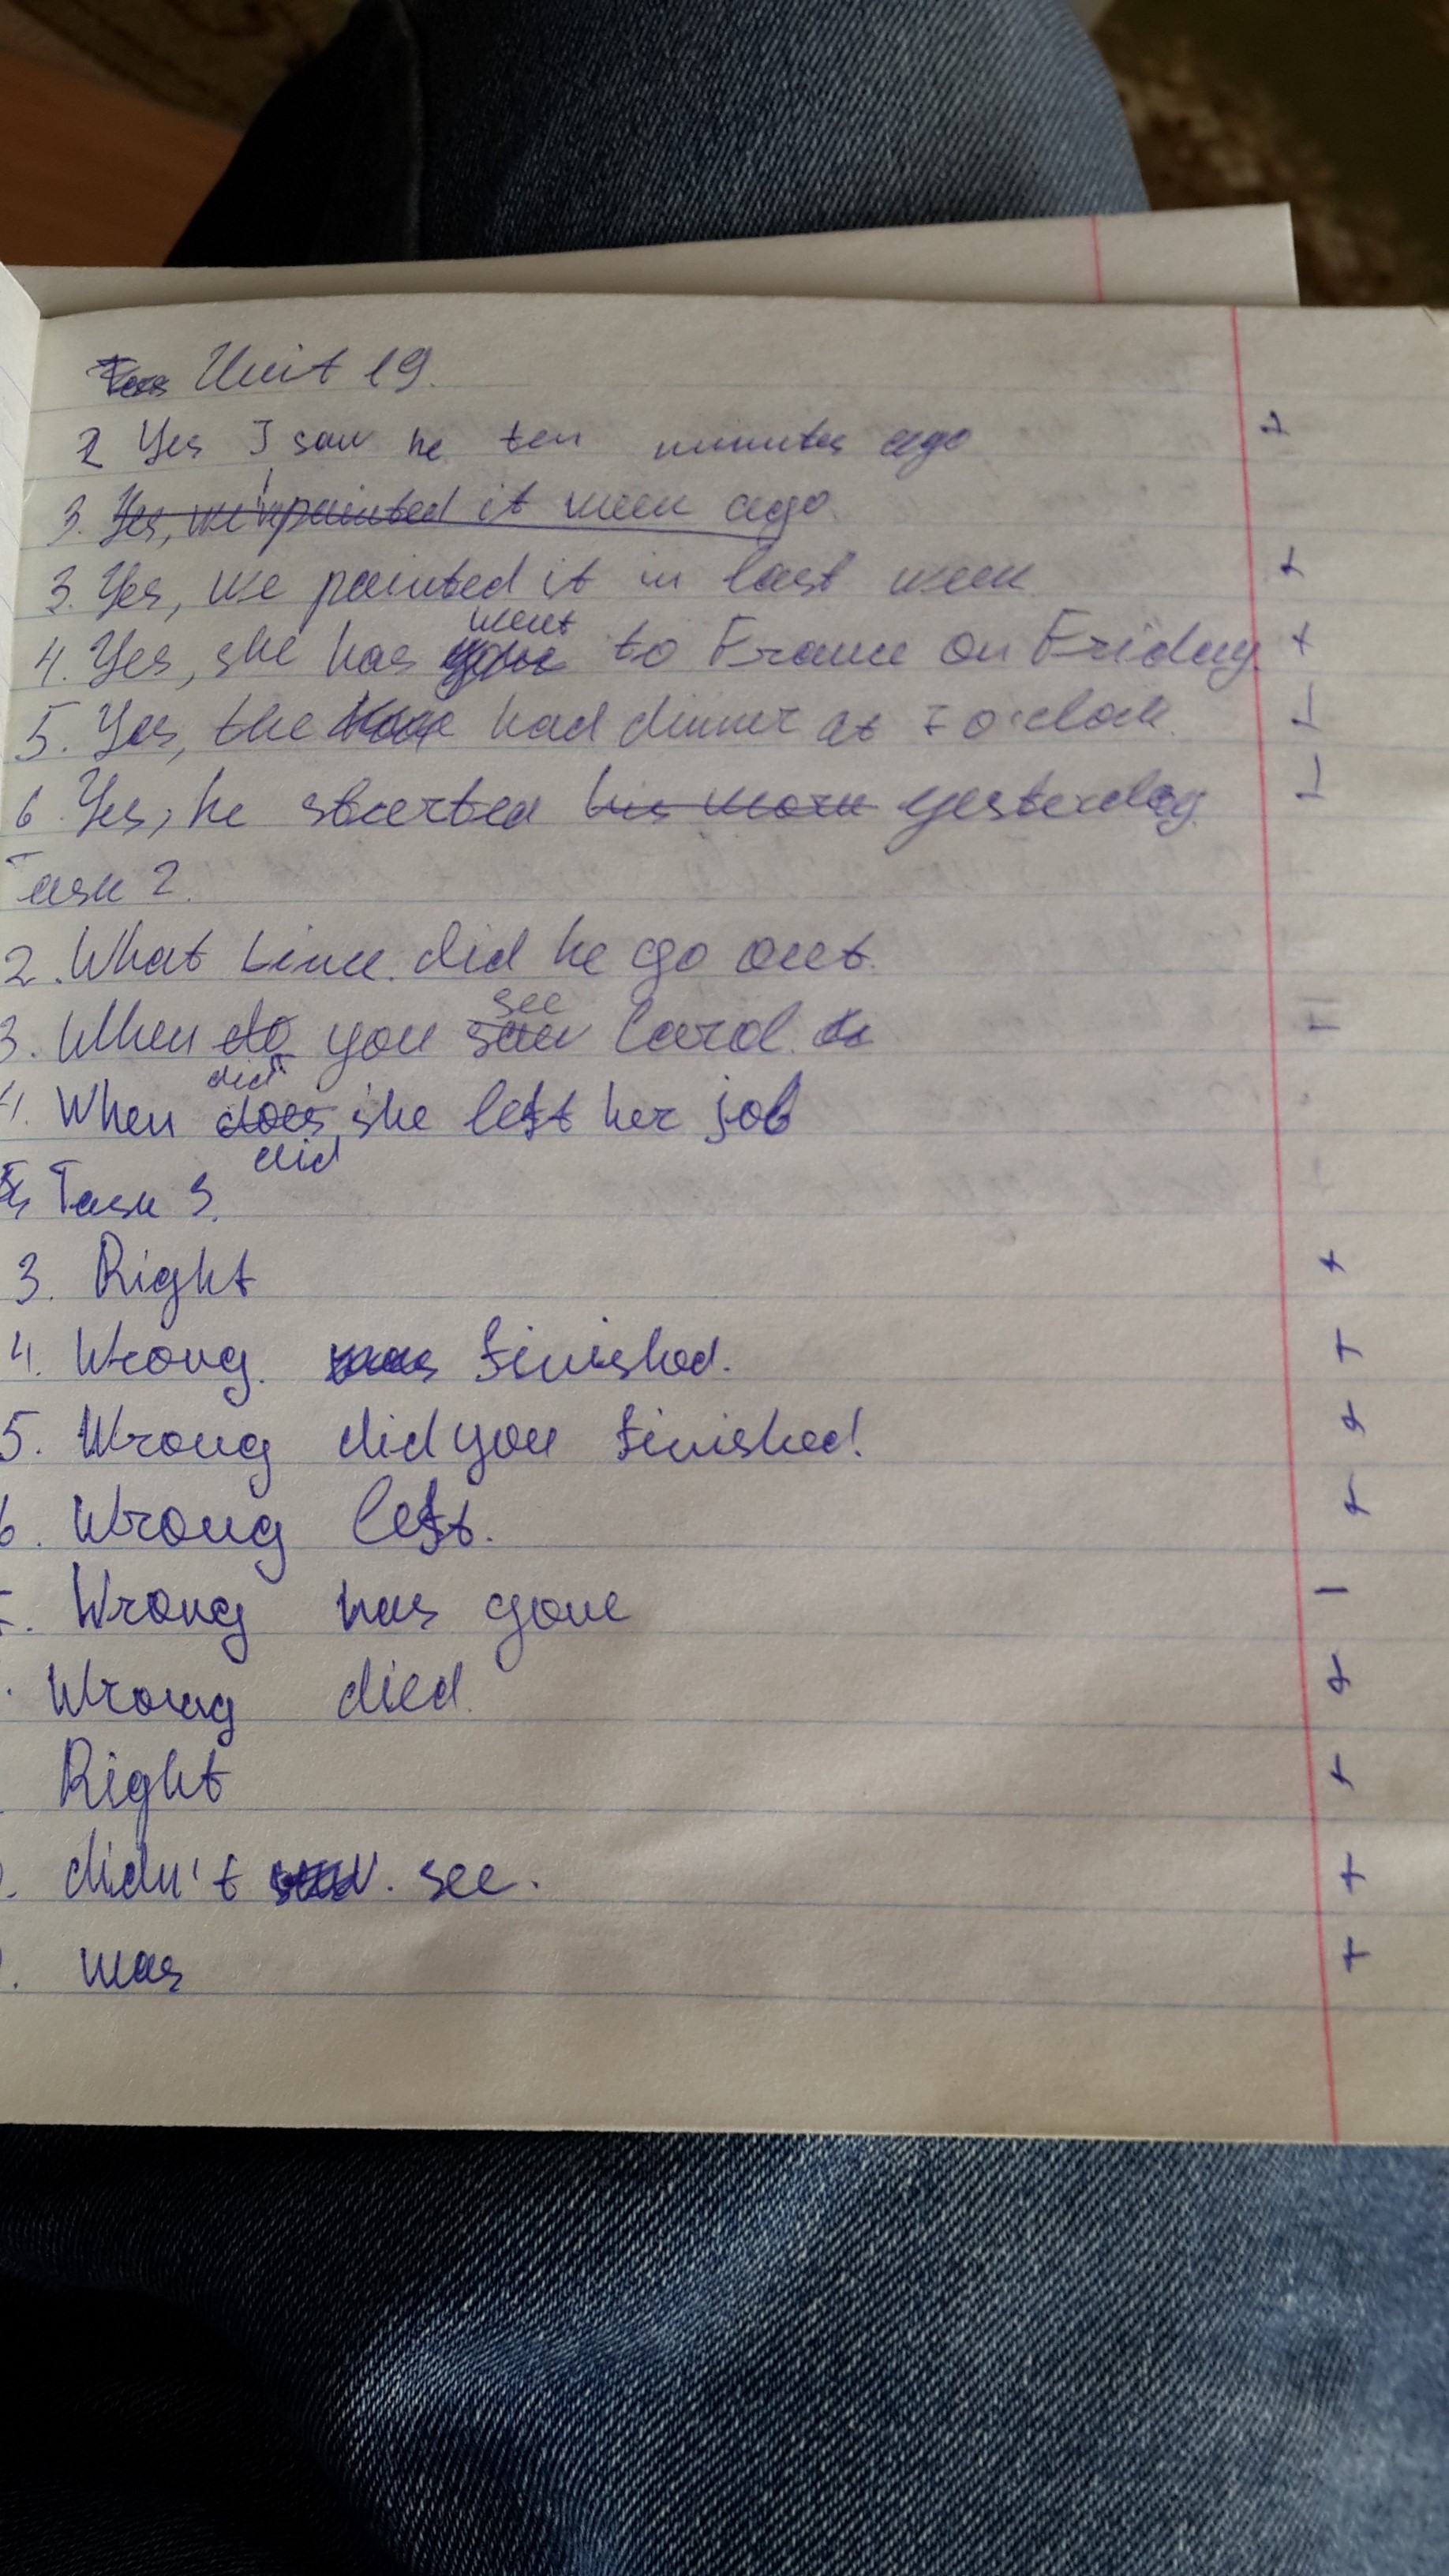 Unit 19.
2 Yes I saw he ten minutes ago +
3. Yes, we painted it week ago.
3. Yes, we painted it in last week +
4. Yes, she has went to France on Friday +
5. Yes, the had dinner at 7 o'clock. +
6 Yes, he started his work yesterday. +
Task 2.
2. What time did he go out.
3. When do did you saw see Carol.
4. When does did she left her job
Task 3.
3. Right +
4. Wrong. finished. +
5. Wrong did you finished! +
6. Wrong left. +
Wrong has gone -
Wrong died. +
Right +
didn't see. +
was +